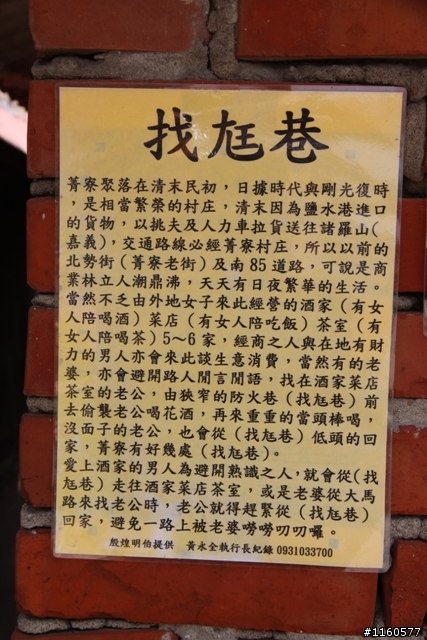 找尪巷
菁寮聚落在清末民初，日據時代與剛光復時
，是相當繁榮的村庄，清末因為鹽水港進口
的貨物，以挑夫及人力車拉貨送往諸羅山(
嘉義)，交通路線必經菁寮村庄，所以以前的
北勢街(菁寮老街)及南85道路，可說是商
業林立人潮鼎沸，天天有日夜繁華的生活。
當然不乏由外地女子來此經營的酒家(有女
人陪喝酒)菜店(有女人陪吃飯)茶室(有
女人陪喝茶)5～6家，經商之人與在地有財
力的男人亦會來此談生意消費，當然有的老
婆，亦會避開路人閒言閒語，找在酒家菜店
茶室的老公，由狹窄的防火巷(找尪巷)前
去偷襲老公喝花酒，再來重重的當頭棒喝，
沒面子的老公，也會從(找尪巷)低頭的回
家，菁寮有好幾處(找尪巷)。
愛上酒家的男人為避開熟識之人，就會從(找
尪巷)走往酒家菜店茶室，或是老婆從大馬
路來找老公時，老公就得趕緊從(找尪巷)
回家，避免一路上被老婆嘮嘮叨叨囉。
殷煌明伯提供　黃永全執行長紀錄 0931033700
#1160577